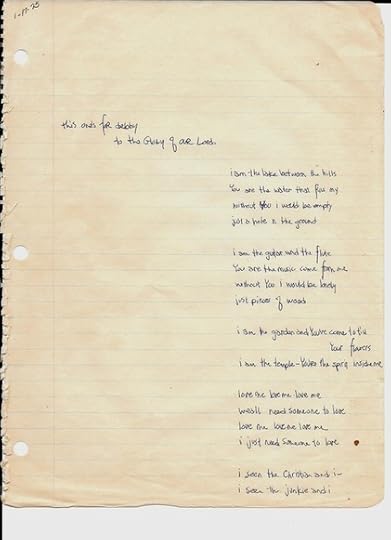 1-17-75
this one's for debby
to the Glory of our Lord.
i am the lake between the hills
You are the water that fills my
without You i would be empty
just a hole in the ground
i am the guitar and the flute
You are the music come from me
without You I would be lonely
just pieces of wood
i am the garden and You've come to
Your flowers
i am the temple - You're the spirit inside me
love me love me love me
we all need someone to love
love me love me love me
i just need someone to love
i seen the Christian and i -
i seen the junkie and i